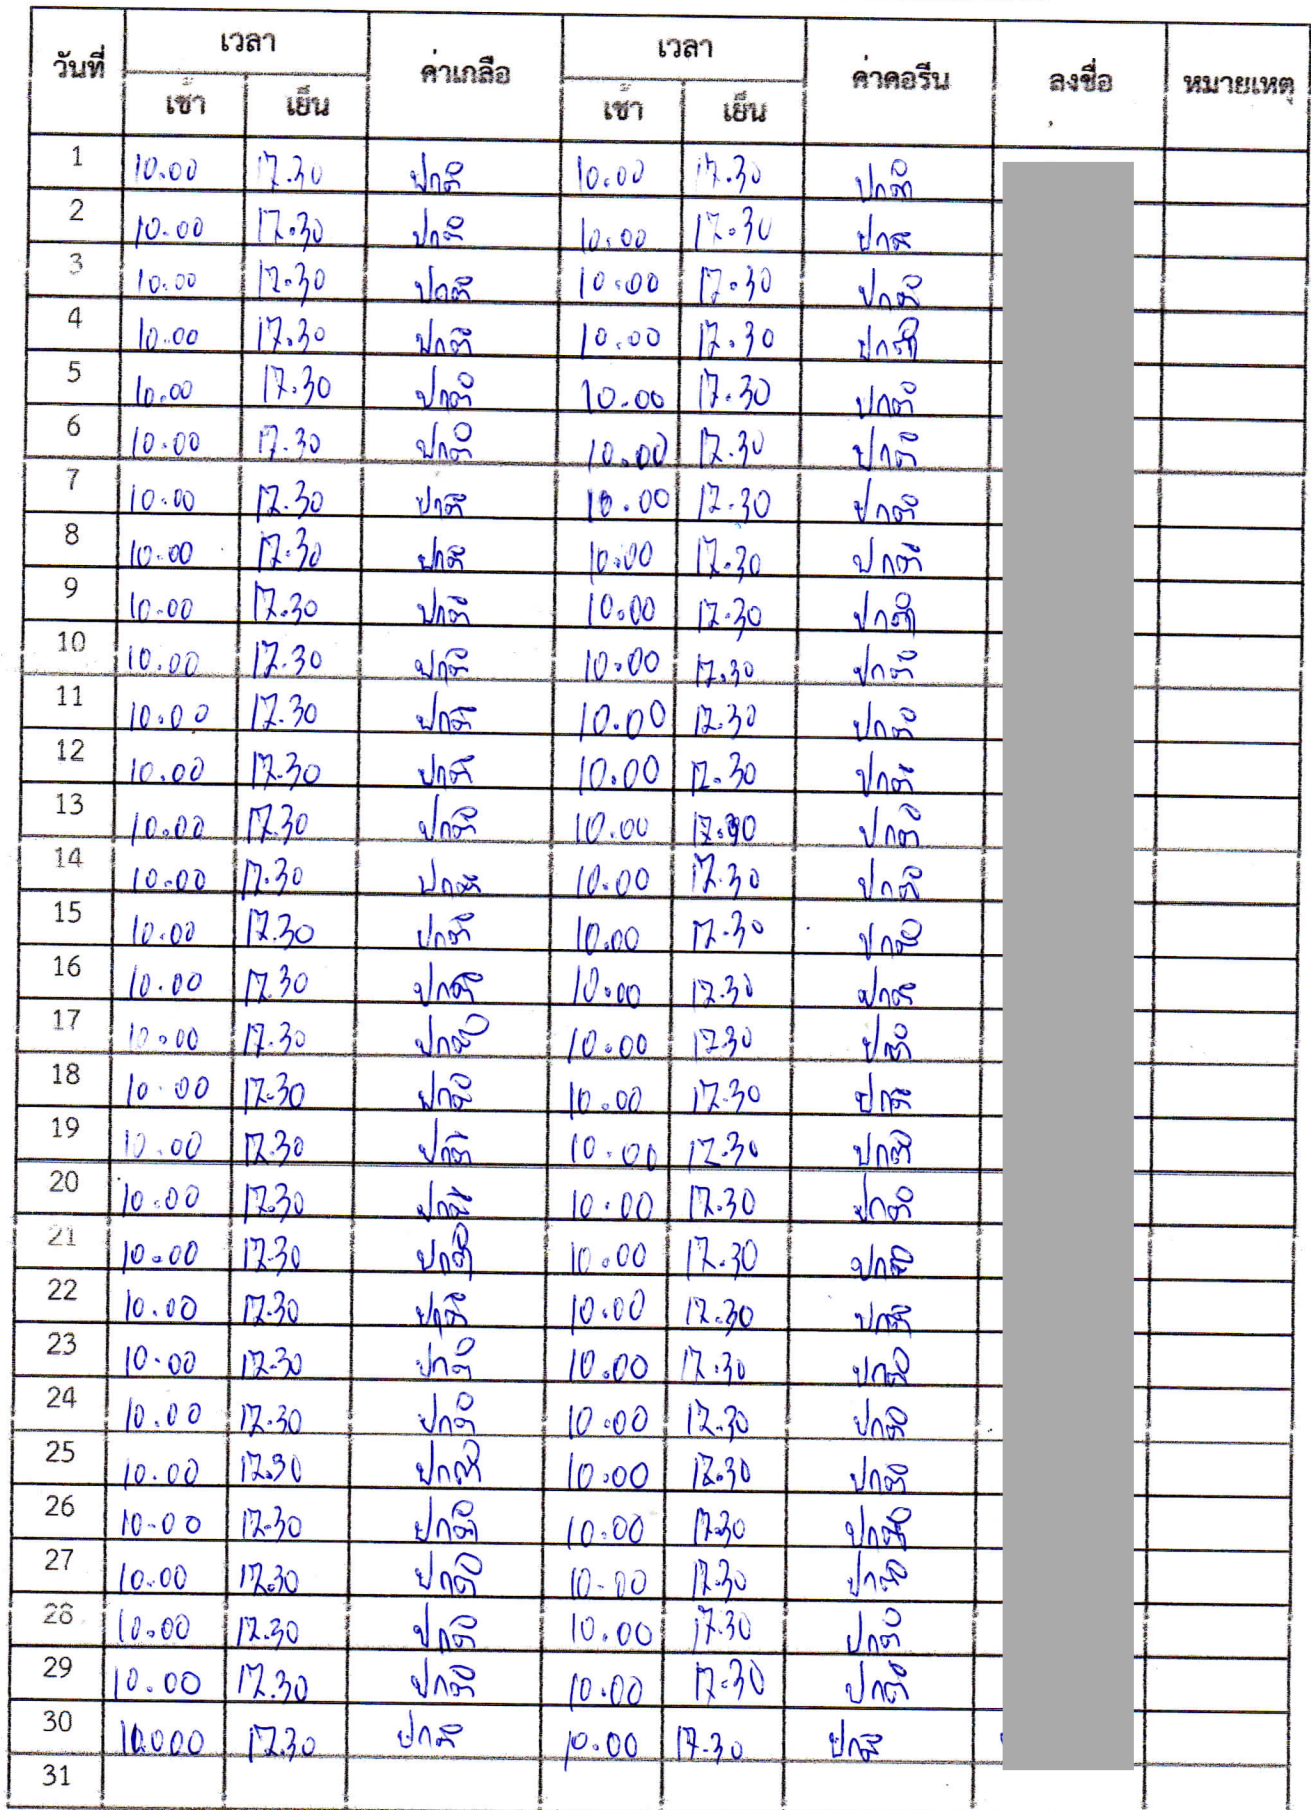 วันที่ เวลา ค่าเกลือ เวลา ค่าคอรีน ลงชื่อ หมายเหตุ
เช้า เย็น เช้า เย็น
1 10.00 17.30 ปกติ 10.00 17.30 ปกติ
2 10.00 17.30 ปกติ 10.00 17.30 ปกติ
3 10.00 17.30 ปกติ 10.00 17.30 ปกติ
4 10.00 17.30 ปกติ 10.00 17.30 ปกติ
5 10.00 17.30 ปกติ 10.00 17.30 ปกติ
6 10.00 17.30 ปกติ 10.00 17.30 ปกติ
7 10.00 17.30 ปกติ 10.00 17.30 ปกติ
8 10.00 17.30 ปกติ 10.00 17.30 ปกติ
9 10.00 17.30 ปกติ 10.00 17.30 ปกติ
10 10.00 17.30 ปกติ 10.00 17.30 ปกติ
11 10.00 17.30 ปกติ 10.00 17.30 ปกติ
12 10.00 17.30 ปกติ 10.00 17.30 ปกติ
13 10.00 17.30 ปกติ 10.00 17.30 ปกติ
14 10.00 17.30 ปกติ 10.00 17.30 ปกติ
15 10.00 17.30 ปกติ 10.00 17.30 ปกติ
16 10.00 17.30 ปกติ 10.00 17.30 ปกติ
17 10.00 17.30 ปกติ 10.00 17.30 ปกติ
18 10.00 17.30 ปกติ 10.00 17.30 ปกติ
19 10.00 17.30 ปกติ 10.00 17.30 ปกติ
20 10.00 17.30 ปกติ 10.00 17.30 ปกติ
21 10.00 17.30 ปกติ 10.00 17.30 ปกติ
22 10.00 17.30 ปกติ 10.00 17.30 ปกติ
23 10.00 17.30 ปกติ 10.00 17.30 ปกติ
24 10.00 17.30 ปกติ 10.00 17.30 ปกติ
25 10.00 17.30 ปกติ 10.00 17.30 ปกติ
26 10.00 17.30 ปกติ 10.00 17.30 ปกติ
27 10.00 17.30 ปกติ 10.00 17.30 ปกติ
28 10.00 17.30 ปกติ 10.00 17.30 ปกติ
29 10.00 17.30 ปกติ 10.00 17.30 ปกติ
30 10.00 17.30 ปกติ 10.00 17.30 ปกติ
31